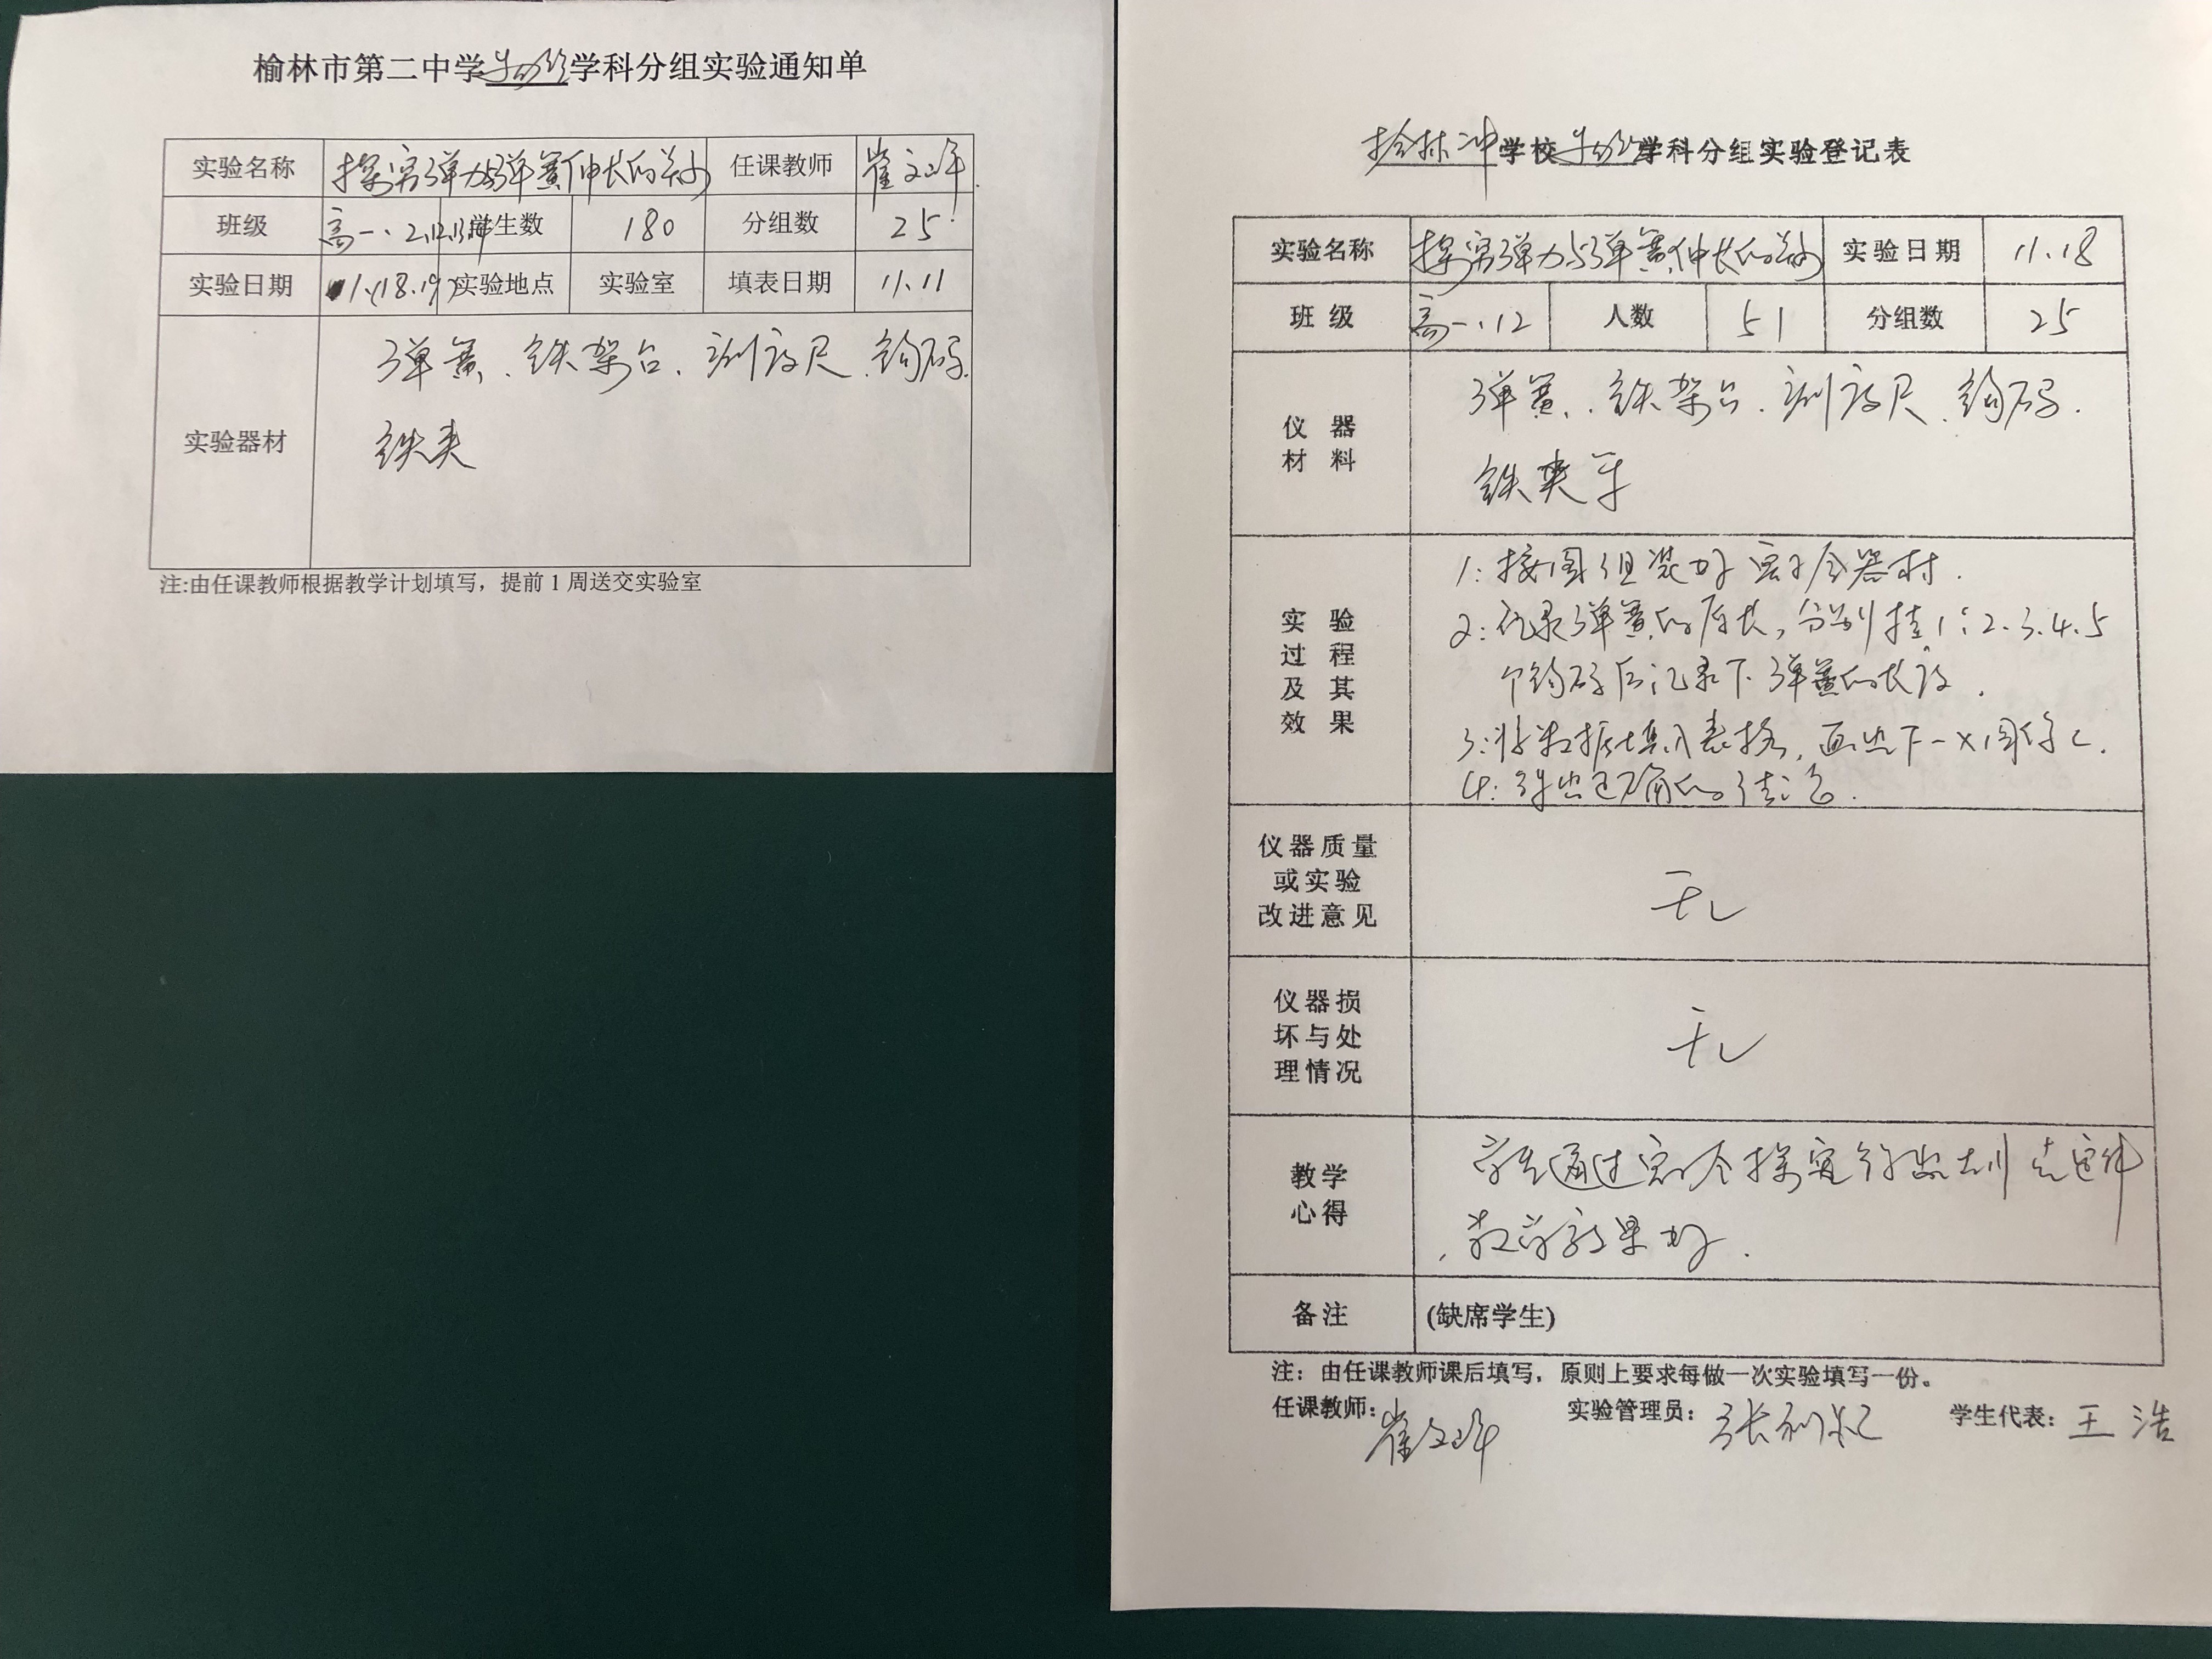 榆林市第二中学物理学科分组实验通知单
实验名称 探究弹力与弹簧伸长的关系 任课教师 崔文军
班级 高一、2,12,13,14 学生数 180 分组数 25
实验日期 11.(18.19) 实验地点 实验室 填表日期 11.11
实验器材
弹簧、铁架台、刻度尺、钩码.
铁夹
注:由任课教师根据教学计划填写，提前1周送交实验室
榆林二中学校物理学科分组实验登记表
实验名称 探究弹力与弹簧伸长的关系 实验日期 11.18
班级 高一、12 人数 51 分组数 25
仪器
材料
弹簧、铁架台、刻度尺、钩码.
铁夹等
实验
过程
及其
效果
1:按图组装好实验器材.
2:记录弹簧的原长,分别挂1:2.3.4.5
个钩码后记录下弹簧的长度.
3:将数据填入表格,画出F-x图像.
4:得出正确的结论.
仪器质量
或实验
改进意见
无
仪器损
坏与处
理情况
无
教学
心得
学生通过实验探究得出胡克定律
,教学效果好.
备注 (缺席学生)
注：由任课教师课后填写，原则上要求每做一次实验填写一份。
任课教师：崔文军 实验管理员：张利 学生代表：王浩